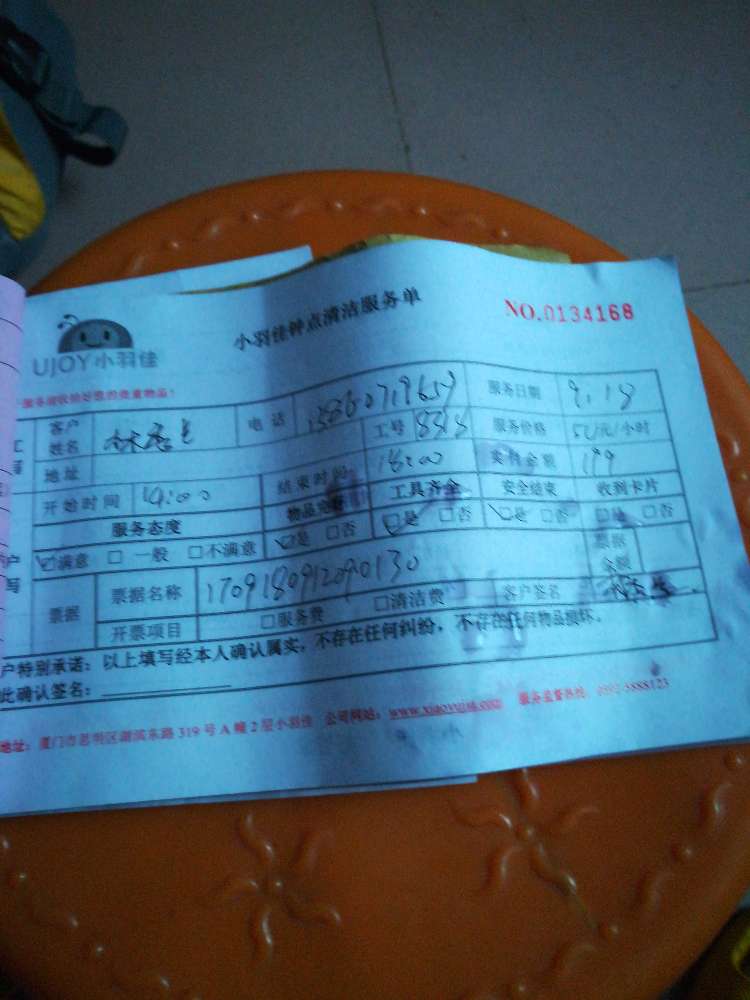 UJOY小羽佳
小羽佳钟点清洁服务单
NO.0134168
客户姓名 电话 服务日期 9.18
地址 工号 8318 服务价格 元/小时
开始时间 14:00 结束时间 18:00 实付金额 199
服务态度 物品完好 工具齐全 安全结束 收到卡片
满意 □一般 □不满意 是 □否 是 □否 是 □否 是 □否
票据 票据名称 1709180912090130 票据金额
开票项目 □服务费 □清洁费 客户签名
户特别承诺：以上填写经本人确认属实，不存在任何纠纷，不存在任何物品损坏。
此确认签名：
地址：厦门市思明区湖滨东路319号A幢2层小羽佳 公司网站：www.xiaoyujia.com 服务监督热线：0592-5888123